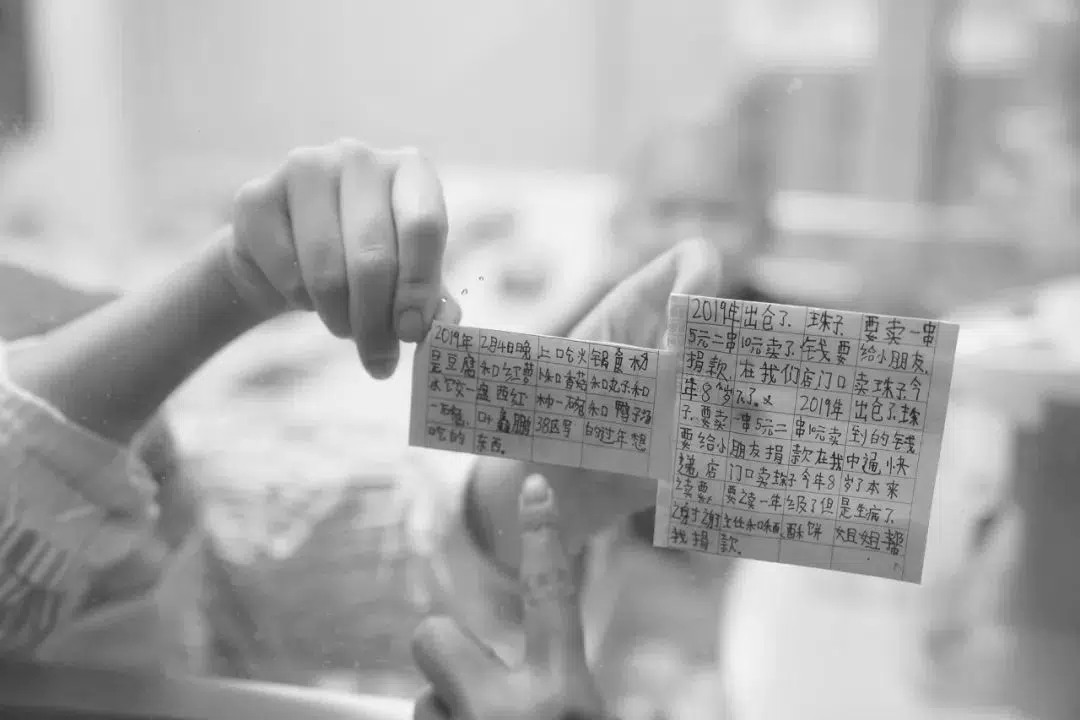 2019年2月4日晚上口吃火锅食材
是豆腐和红萝卜和香菇和丸子和
水饺一盘西红柿一碗和鸭子汤
一碗。叶鑫鹏38区写的过年想
吃的东西。
2019年出仓了.珠子.要卖一串
5元二串10元卖了.钱要给小朋友.
捐款.在我们店门口卖珠子.今
年8岁了.2019年出仓了.珠
子.要卖一串5元二串10元卖到的钱
要给小朋友捐款在我中通快
递店门口卖珠子今年8岁了本来
读要读一年级了但是生病了.
谢谢主任和酥饼姐姐帮
我捐款.